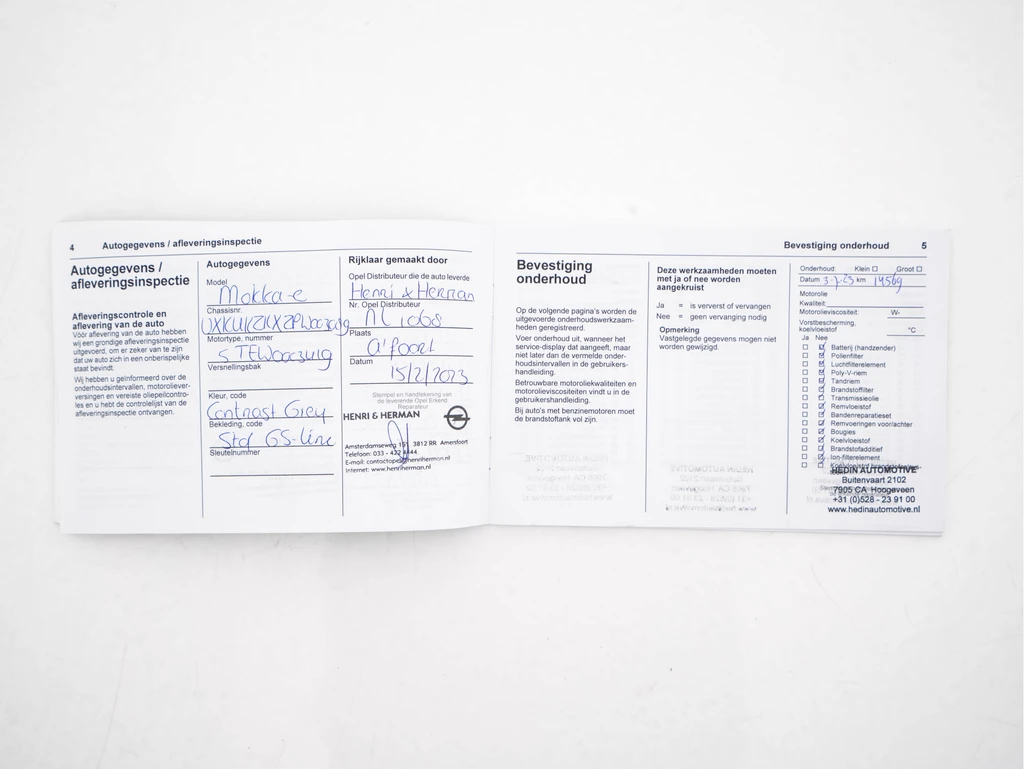 4 Autogegevens / afleveringsinspectie
Autogegevens /
afleveringsinspectie
Afleveringscontrole en
aflevering van de auto
Vóór aflevering van de auto hebben
wij een grondige afleveringsinspectie
uitgevoerd, om er zeker van te zijn
dat uw auto zich in een onberispelijke
staat bevindt.
Wij hebben u geïnformeerd over de
onderhoudsintervallen, motoroliever-
versingen en vereiste oliepeilcontro-
les en u hebt de controlelijst van de
afleveringsinspectie ontvangen.
Autogegevens
Model
Mokka-e
Chassisnr.
Motortype, nummer
Versnellingsbak
Kleur, code
Contrast Grey
Bekleding, code
Std GS-line
Sleutelnummer
Rijklaar gemaakt door
Opel Distributeur die de auto leverde
Henri & Herman
Nr. Opel Distributeur
NL 1068
Plaats
A'foort
Datum
15/2/2023
Stempel en handtekening van
de leverende Opel Erkend
Reparateur
HENRI & HERMAN
Amsterdamseweg 3812 RR Amersfoort
Telefoon: 033 -
E-mail:
Internet: www.henriherman.nl
Bevestiging onderhoud 5
Bevestiging
onderhoud
Op de volgende pagina's worden de
uitgevoerde onderhoudswerkzaam-
heden geregistreerd.
Voer onderhoud uit, wanneer het
service-display dat aangeeft, maar
niet later dan de vermelde onder-
houdsintervallen in de gebruikers-
handleiding.
Betrouwbare motoroliekwaliteiten en
motorolieviscositeiten vindt u in de
gebruikershandleiding.
Bij auto's met benzinemotoren moet
de brandstoftank vol zijn.
Deze werkzaamheden moeten
met ja of nee worden
aangekruist
Ja = is ververst of vervangen
Nee = geen vervanging nodig
Opmerking
Vastgelegde gegevens mogen niet
worden gewijzigd.
Onderhoud: Klein ☐ Groot ☐
Datum km 14569
Motorolie
Kwaliteit:
Motorolieviscositeit: W-
Vorstbescherming,
koelvloeistof °C
Ja Nee
☐ ☑ Batterij (handzender)
☐ ☑ Pollenfilter
☐ ☑ Luchtfilterelement
☐ ☑ Poly-V-riem
☐ ☑ Tandriem
☐ ☑ Brandstoffilter
☐ ☑ Transmissieolie
☐ ☑ Remvloeistof
☐ ☑ Bandenreparatieset
☐ ☑ Remvoeringen voor/achter
☐ ☑ Bougies
☐ ☑ Koelvloeistof
☐ ☑ Brandstofadditief
☐ ☑ Ion-filterelement
HEDIN AUTOMOTIVE
Buitenvaart 2102
7905 CA Hoogeveen
+31 (0)528 - 23 91 00
www.hedinautomotive.nl